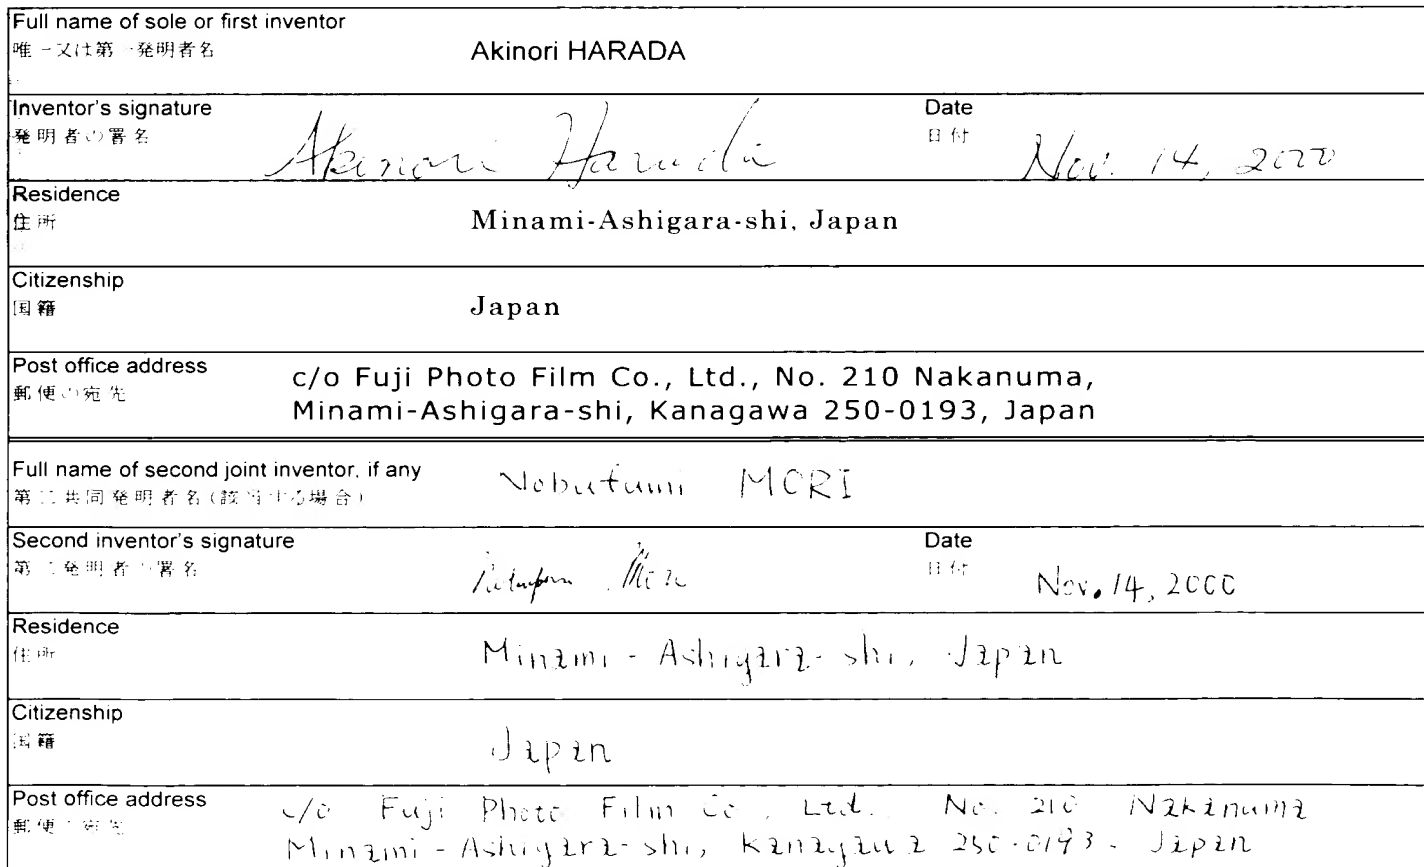 Full name of sole or first inventor
唯一又は第一発明者名
Akinori HARADA
Inventor's signature
発明者の署名
Akinori Harada
Date
日付
Nov. 14, 2000
Residence
住所
Minami-Ashigara-shi, Japan
Citizenship
国籍
Japan
Post office address
郵便の宛先
c/o Fuji Photo Film Co., Ltd., No. 210 Nakanuma,
Minami-Ashigara-shi, Kanagawa 250-0193, Japan
Full name of second joint inventor, if any
第二共同発明者名(該当する場合)
Nobufumi MORI
Second inventor's signature
第二発明者の署名
Mori
Date
日付
Nov. 14, 2000
Residence
住所
Minami-Ashigara-shi, Japan
Citizenship
国籍
Japan
Post office address
郵便の宛先
c/o Fuji Photo Film Co., Ltd. No. 210 Nakanuma
Minami-Ashigara-shi, Kanagawa 250-0193, Japan